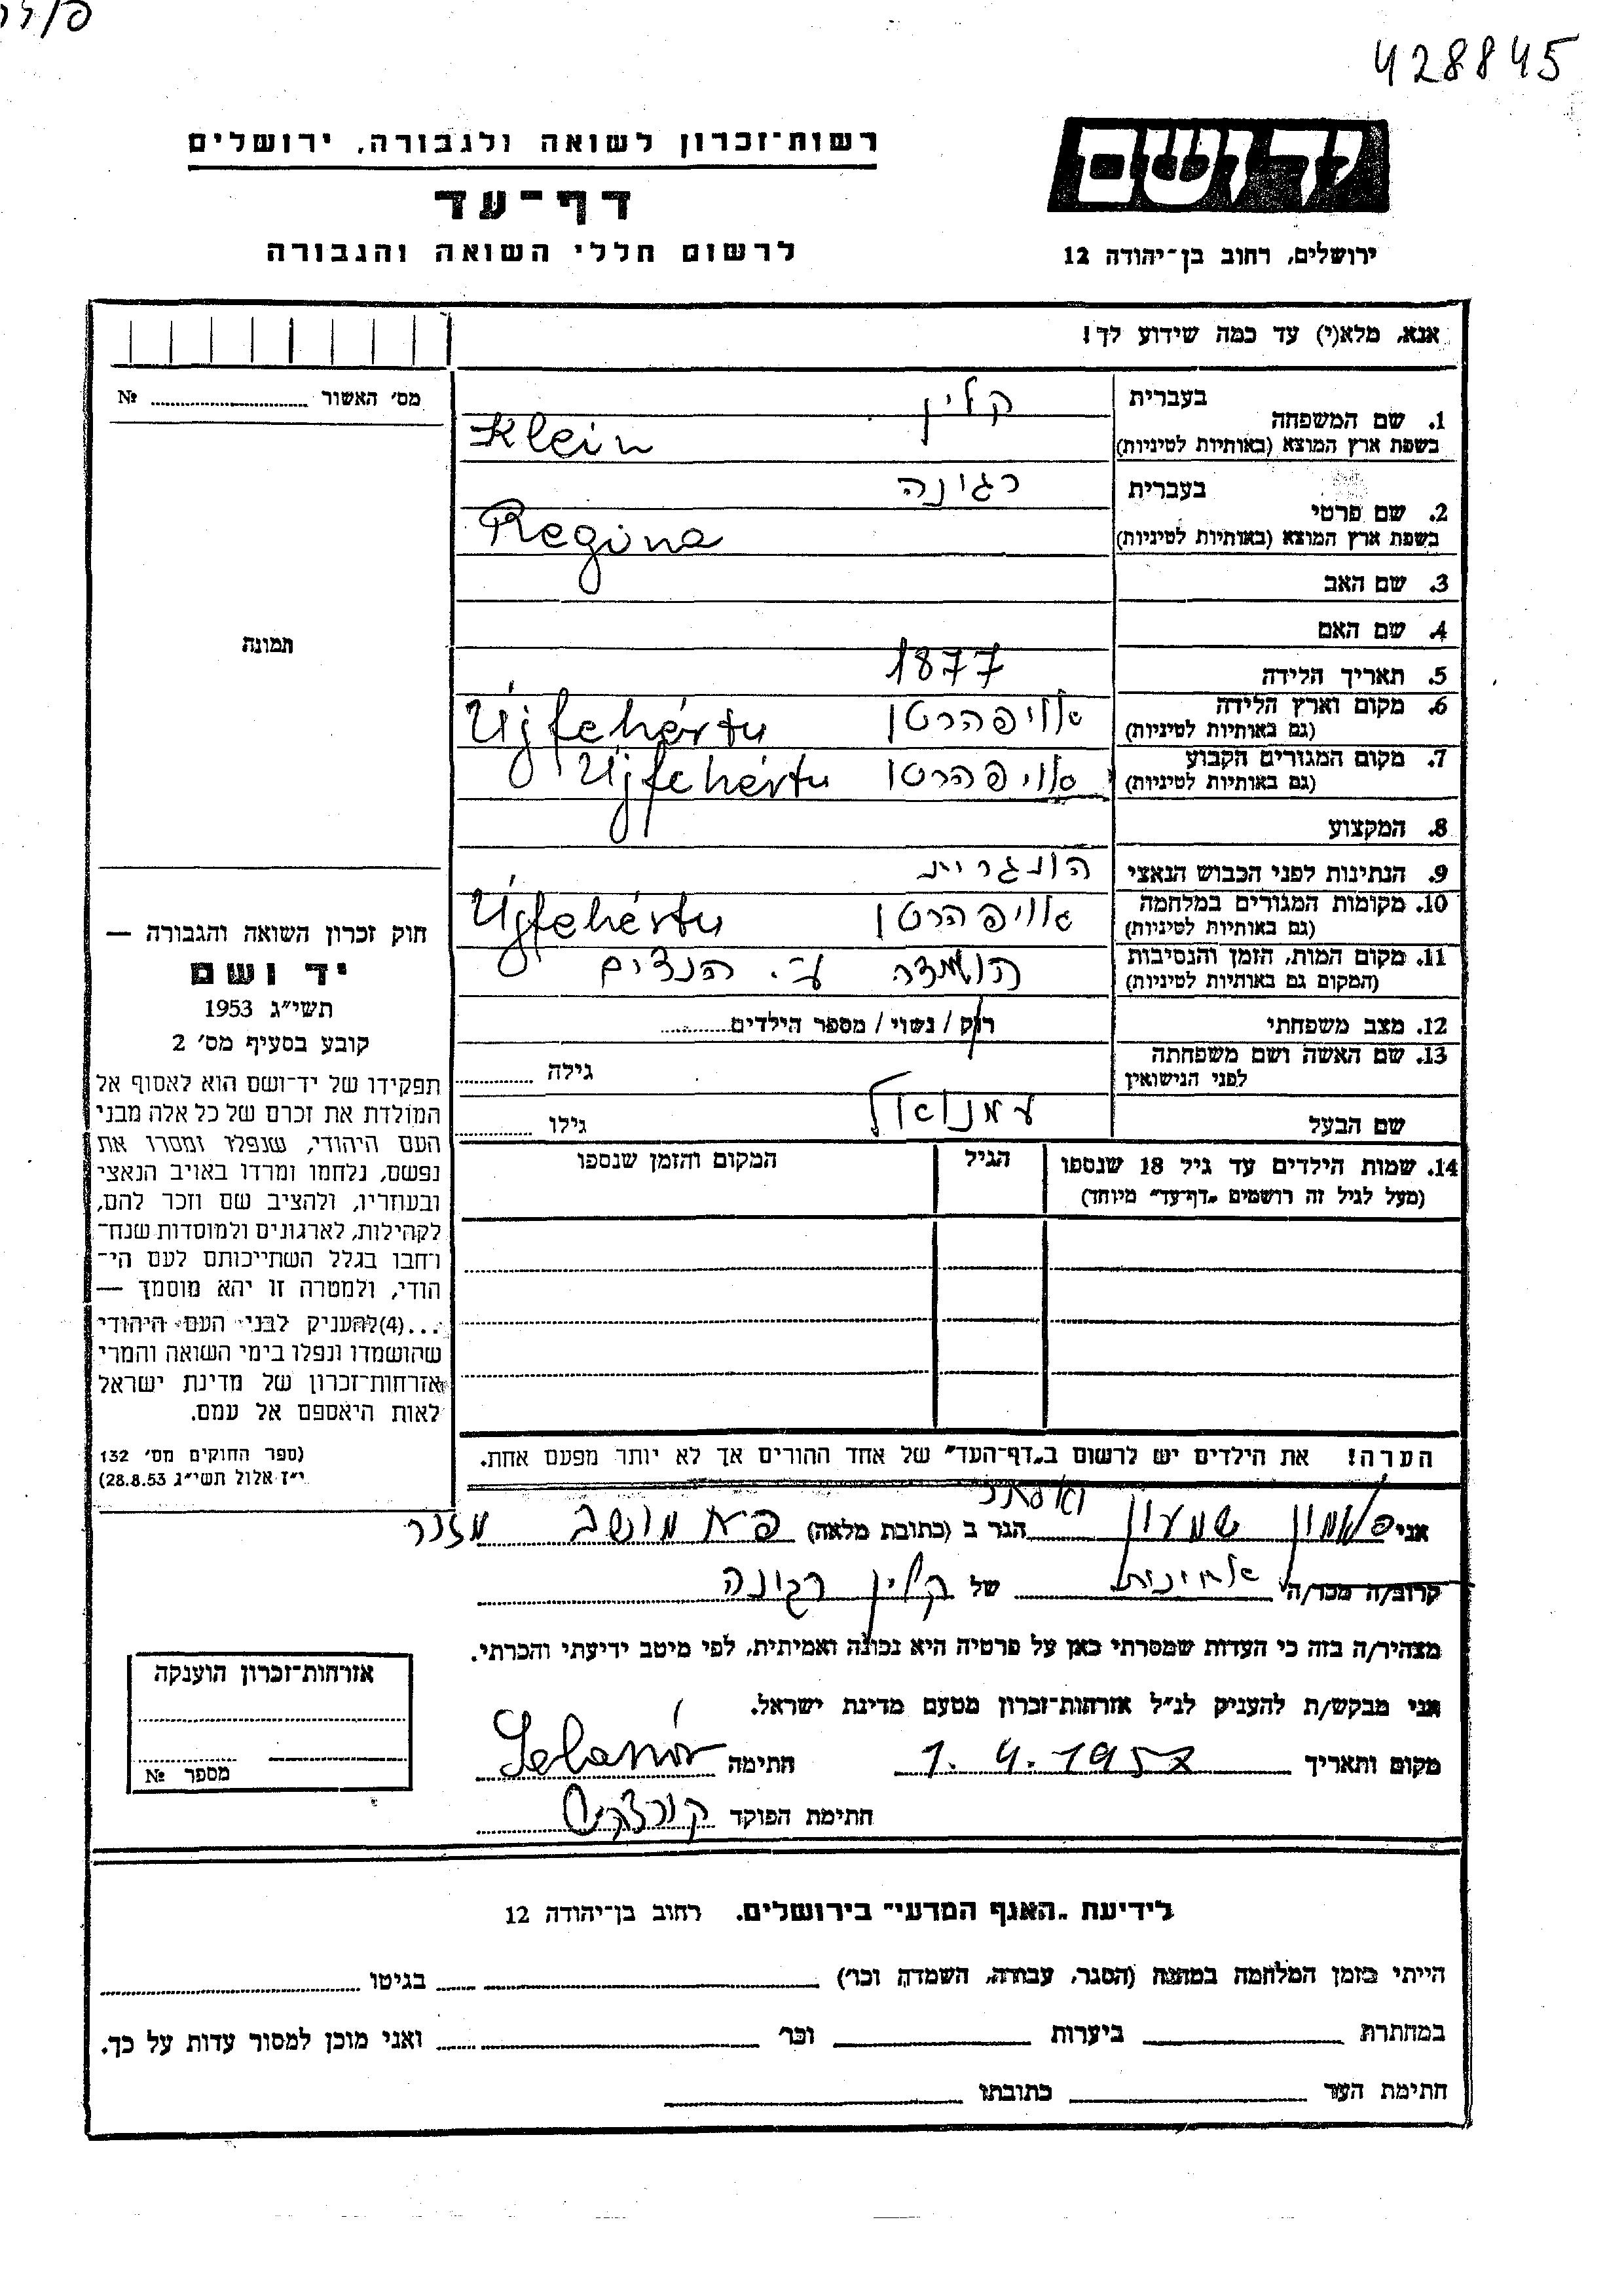 428845
יד ושם
ירושלים, רחוב בן־יהודה 12
רשות־זכרון לשואה ולגבורה, ירושלים
דף־עד
לרשום חללי השואה והגבורה
אנא, מלא(י) עד כמה שידוע לך!
מס׳ האשור № ........
תמונה
חוק זכרון השואה והגבורה —
יד ושם
תשי״ג 1953
קובע בסעיף מס׳ 2
תפקידו של יד־ושם הוא לאסוף אל
המולדת את זכרם של כל אלה מבני
העם היהודי, שנפלו ומסרו את
נפשם, נלחמו ומרדו באויב הנאצי
ובעוזריו, ולהציב שם וזכר להם,
לקהילות, לארגונים ולמוסדות שנח־
רחבו בגלל השתייכותם לעם הי־
הודי, ולמטרה זו יהא מוסמך —
...(4)להעניק לבני העם היהודי
שהושמדו ונפלו בימי השואה והמרי
אזרחות־זכרון של מדינת ישראל
לאות היאספם אל עמם.
(ספר החוקים מס׳ 132
י״ז אלול תשי״ג 28.8.53)
1. שם המשפחה בעברית קליין
בשפת ארץ המוצא (באותיות לטיניות) Klein
2. שם פרטי בעברית רגינה
בשפת ארץ המוצא (באותיות לטיניות) Regina
3. שם האב
4. שם האם
5. תאריך הלידה 1877
6. מקום וארץ הלידה (גם באותיות לטיניות) אויפהרטו Újfehértu
7. מקום המגורים הקבוע (גם באותיות לטיניות) אויפהרטו Újfehértu
8. המקצוע
9. הנתינות לפני הכבוש הנאצי הונגרית
10. מקומות המגורים במלחמה (גם באותיות לטיניות) אויפהרטו Újfehértu
11. מקום המות, הזמן והנסיבות (המקום גם באותיות לטיניות) הושמדה ע״י הנצים
12. מצב משפחתי רוק / נשוי / מספר הילדים........
13. שם האשה ושם משפחתה לפני הנישואין גילה ........
שם הבעל עמנואל גילו ........
14. שמות הילדים עד גיל 18 שנספו הגיל המקום והזמן שנספו
(מעל לגיל זה רושמים „דף־עד״ מיוחד)
הערה! את הילדים יש לרשום ב„דף־העד״ של אחד ההורים אך לא יותר מפעם אחת.
אני שמעון הגר ב (כתובת מלאה) מושב
קרוב/ה מכר/ה של קליין רגינה
מצהיר/ה בזה כי העדות שמסרתי כאן על פרטיה היא נכונה ואמיתית, לפי מיטב ידיעתי והכרתי.
אני מבקש/ת להעניק לנ״ל אזרחות־זכרון מטעם מדינת ישראל.
מקום ותאריך 1.4.1957 חתימה
חתימת הפוקד
אזרחות־זכרון הוענקה
מספר №
לידיעת „האגף המדעי״ בירושלים, רחוב בן־יהודה 12
הייתי בזמן המלחמה במחנה (הסגר, עבודה, השמדה וכו׳) בגיטו
במחתרת ביערות וכו׳ ואני מוכן למסור עדות על כך.
חתימת העד כתובתו